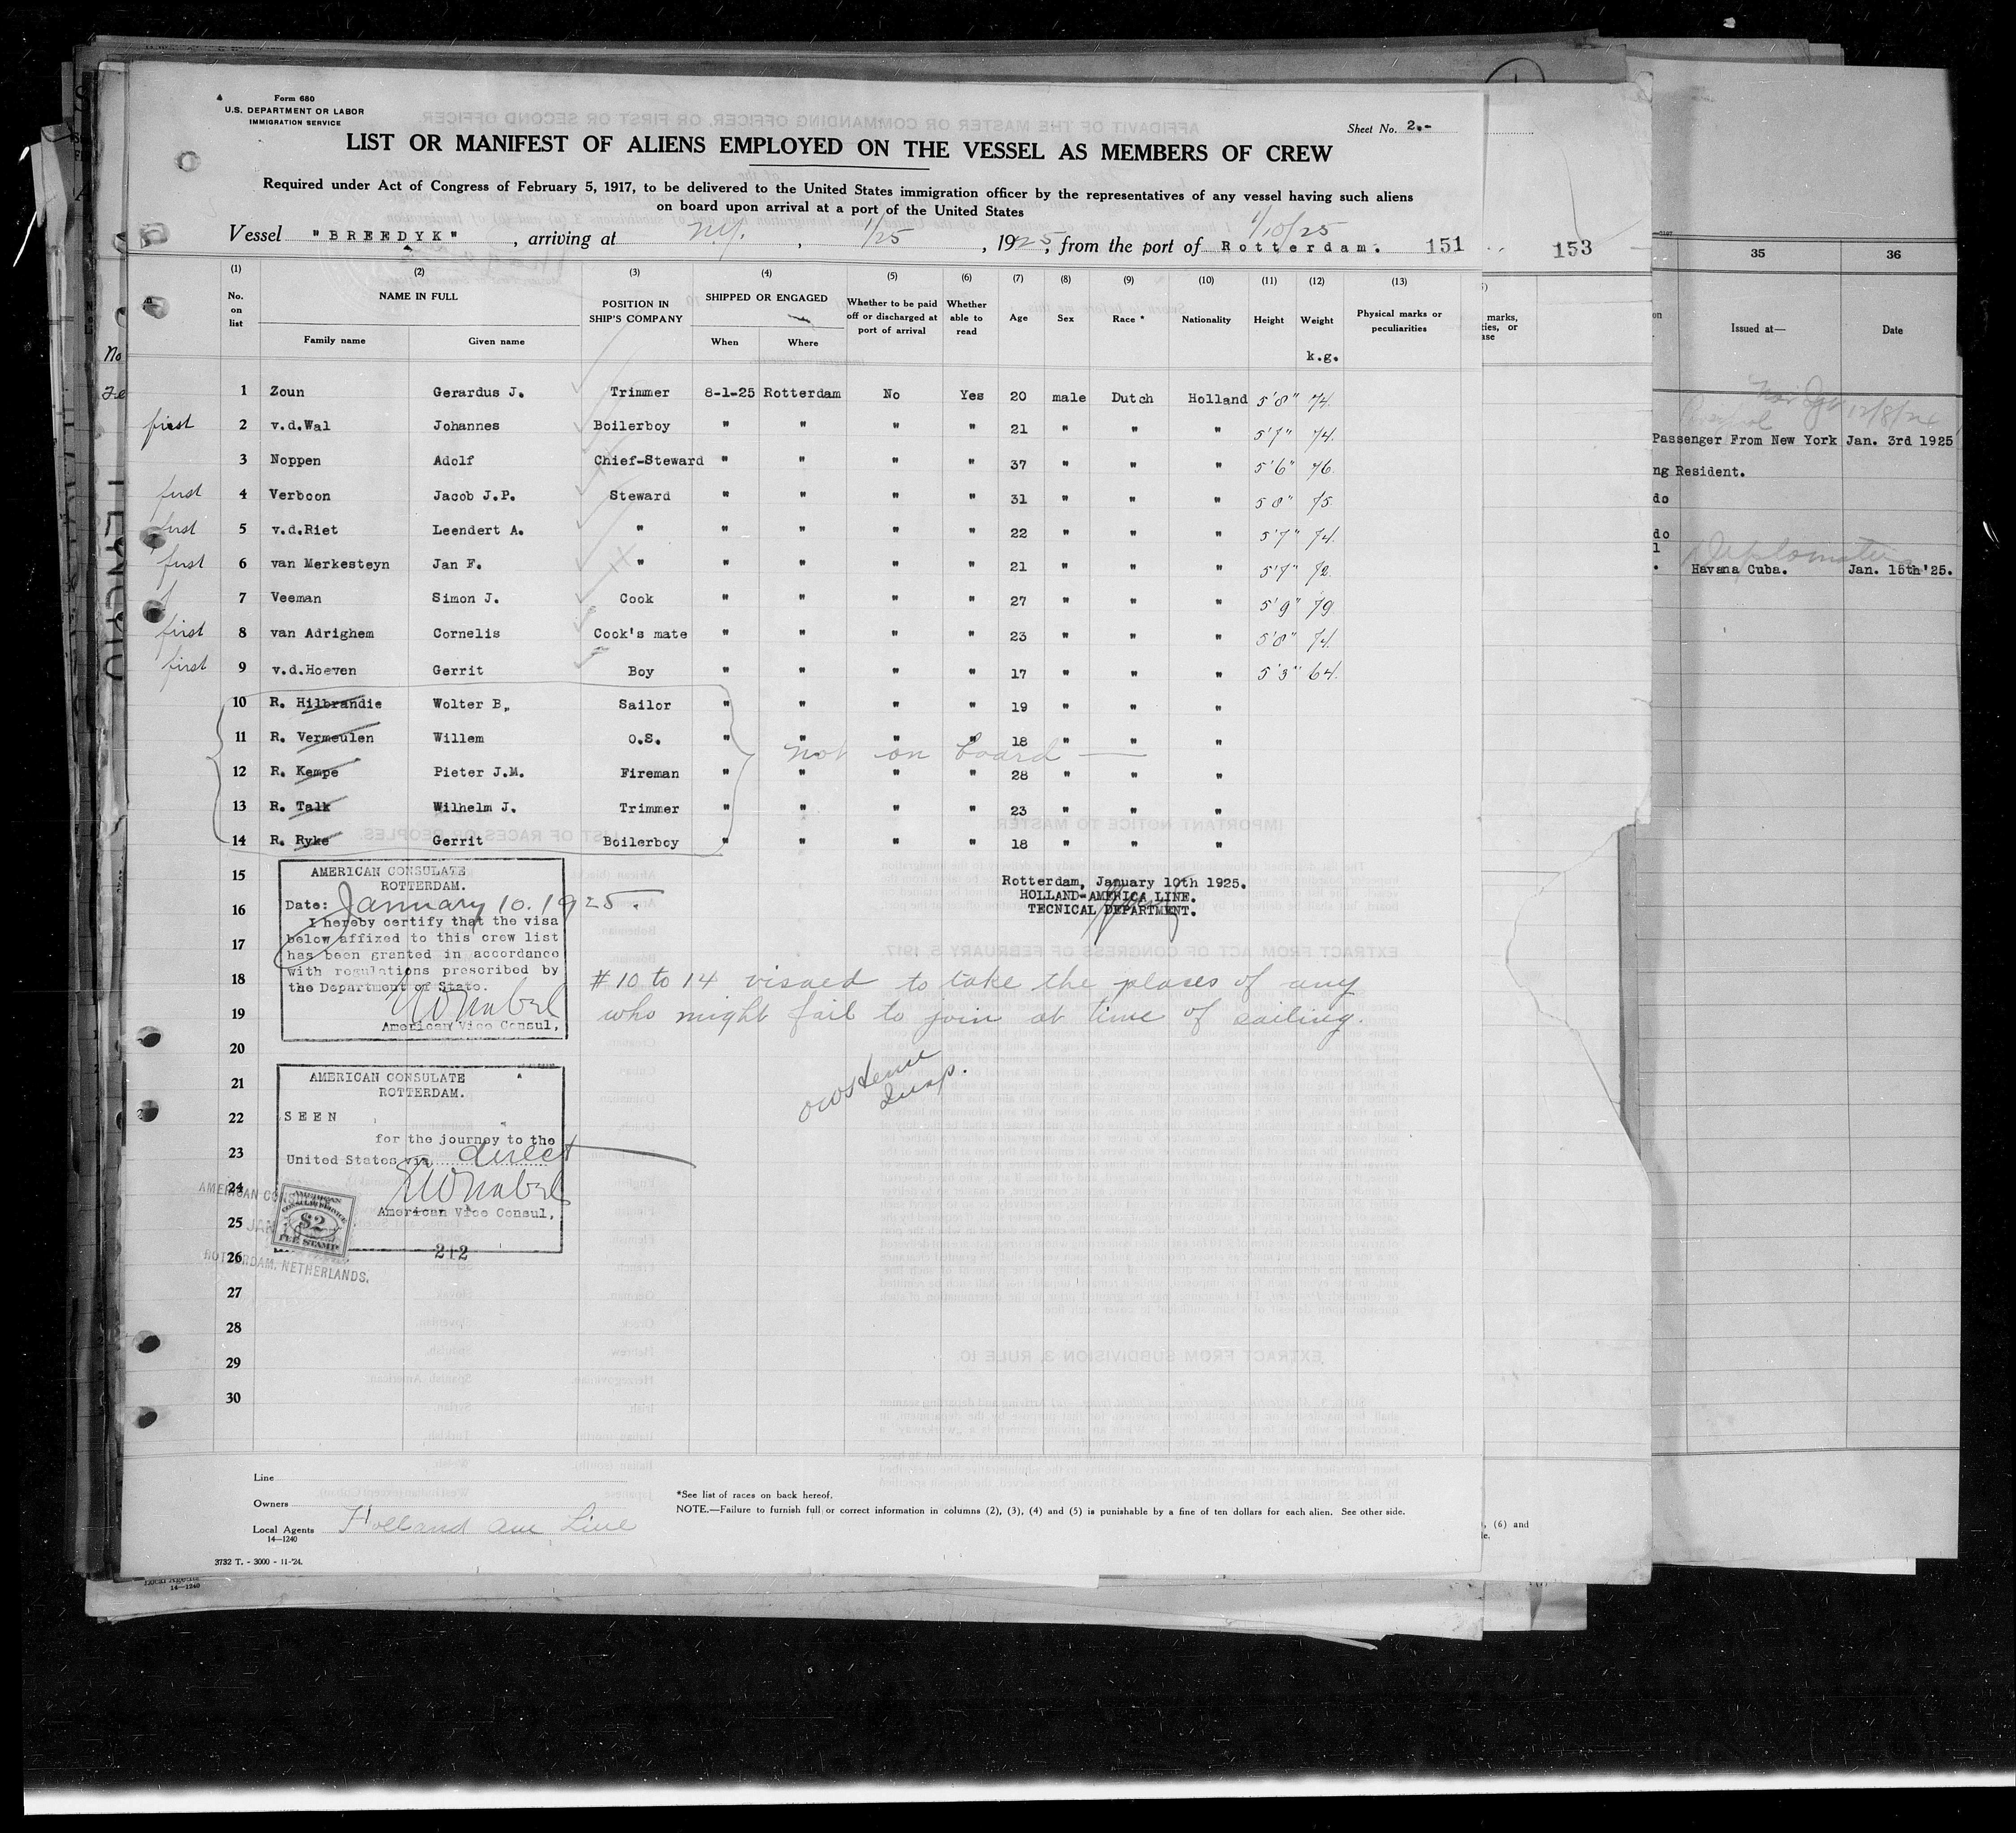 Form 680
U.S. DEPARTMENT OR LABOR
IMMIGRATION SERVICE
Sheet No. 2.-
LIST OR MANIFEST OF ALIENS EMPLOYED ON THE VESSEL AS MEMBERS OF CREW
Required under Act of Congress of February 5, 1917, to be delivered to the United States immigration officer by the representatives of any vessel having such aliens
on board upon arrival at a port of the United States
1/10/25
Vessel "BREEDYK", arriving at N.Y., 1/25, 1925, from the port of Rotterdam. 151
153
(1) (2) (3) (4) (5) (6) (7) (8) (9) (10) (11) (12) (13)
No. on list NAME IN FULL Family name Given name POSITION IN SHIP'S COMPANY SHIPPED OR ENGAGED When Where Whether to be paid off or discharged at port of arrival Whether able to read Age Sex Race * Nationality Height Weight Physical marks or peculiarities
k.g.
1 Zoun Gerardus J. Trimmer 8-1-25 Rotterdam No Yes 20 male Dutch Holland 5'8" 74.
first 2 v.d.Wal Johannes Boilerboy " " " " 21 " " " 5'7" 74.
3 Noppen Adolf Chief-Steward " " " " 37 " " " 5'6" 76.
first 4 Verboon Jacob J.P. Steward " " " " 31 " " " 5'8" 75.
first 5 v.d.Riet Leendert A. " " " " " 22 " " " 5'7" 74.
first 6 van Merkesteyn Jan F. " " " " " 21 " " " 5'7" 72.
7 Veeman Simon J. Cook " " " " 27 " " " 5'9" 79.
first 8 van Adrighem Cornelis Cook's mate " " " " 23 " " " 5'8" 74.
first 9 v.d.Hoeven Gerrit Boy " " " " 17 " " " 5'3" 64.
10 R. Hilbrandie Wolter B, Sailor " " " " 19 " " "
11 R. Vermeulen Willem O.S. " " " " 18 " " "
not on board
12 R. Kempe Pieter J.M. Fireman " " " " 28 " " "
13 R. Talk Wilhelm J. Trimmer " " " " 23 " " "
14 R. Ryke Gerrit Boilerboy " " " " 18 " " "
15
16
17
18
19
20
21
22
23
24
25
26
27
28
29
30
AMERICAN CONSULATE
ROTTERDAM.
Date: January 10. 1925.
I hereby certify that the visa
below affixed to this crew list
has been granted in accordance
with regulations prescribed by
the Department of State.
American Vice Consul,
Rotterdam, January 10th 1925.
HOLLAND-AMERICA LINE.
TECNICAL DEPARTMENT.
#10 to 14 visaed to take the places of any
who might fail to join at time of sailing.
AMERICAN CONSULATE
ROTTERDAM.
SEEN
for the journey to the
United States via direct
American Vice Consul,
212
AMERICAN
CONSULAR SERVICE
$2
FEE STAMP
ROTTERDAM, NETHERLANDS.
Line
Owners
Local Agents Holland Am Line
14—1240
3732 T. - 3000 - 11-'24.
*See list of races on back hereof.
NOTE.—Failure to furnish full or correct information in columns (2), (3), (4) and (5) is punishable by a fine of ten dollars for each alien. See other side.
35 36
Issued at— Date
12/8/24
Passenger From New York Jan. 3rd 1925
ng Resident.
do
do
Havana Cuba. Jan. 15th'25.
, (6) and